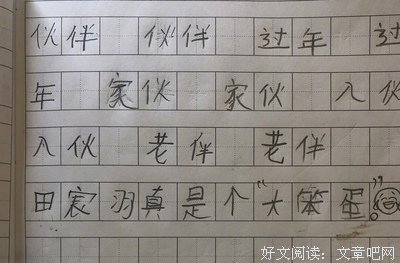 伙伴 伙伴 过年 过
年 家伙 家伙 入伙
入伙 老伴 老伴
田宸羽真是个“大笨蛋”。
好文阅读：文章吧网